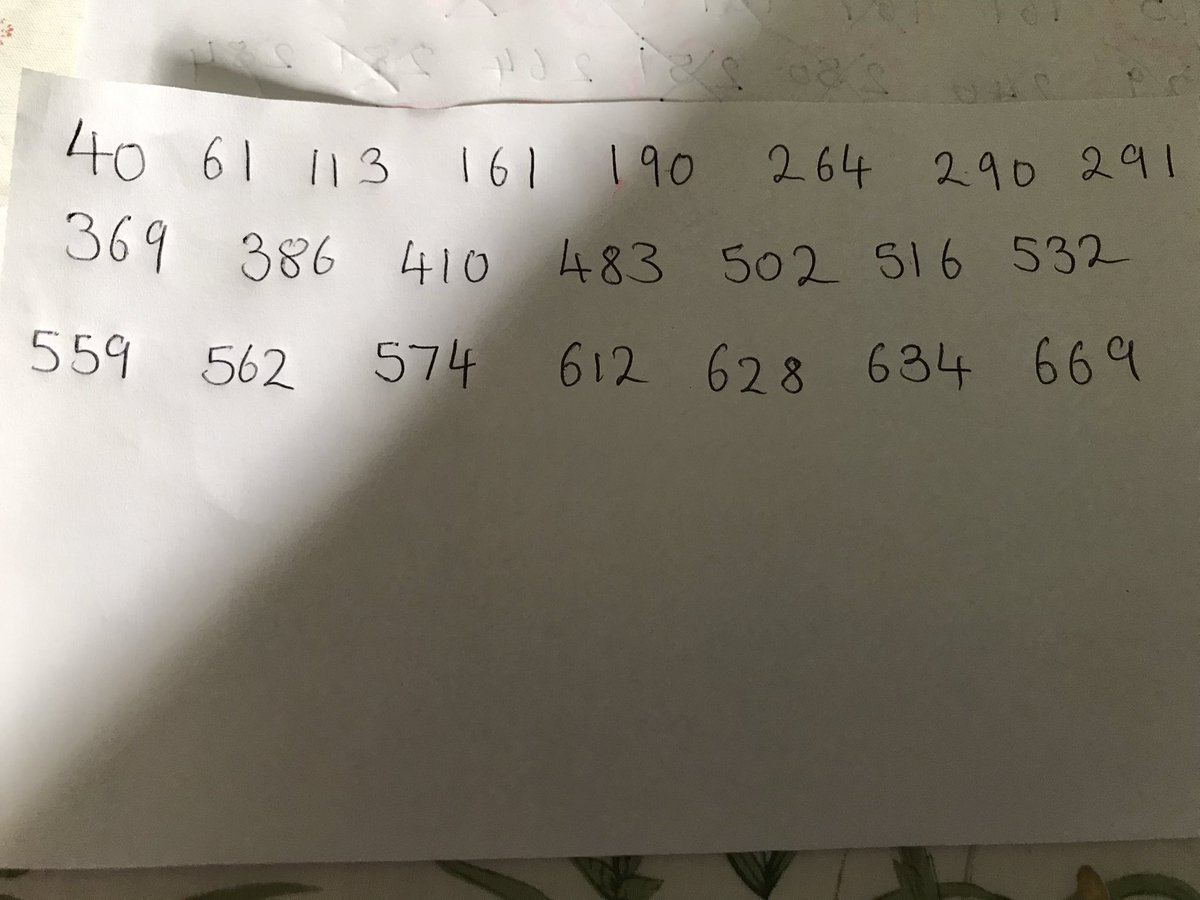 40 61 113 161 190 264 290 291
369 386 410 483 502 516 532
559 562 574 612 628 634 669